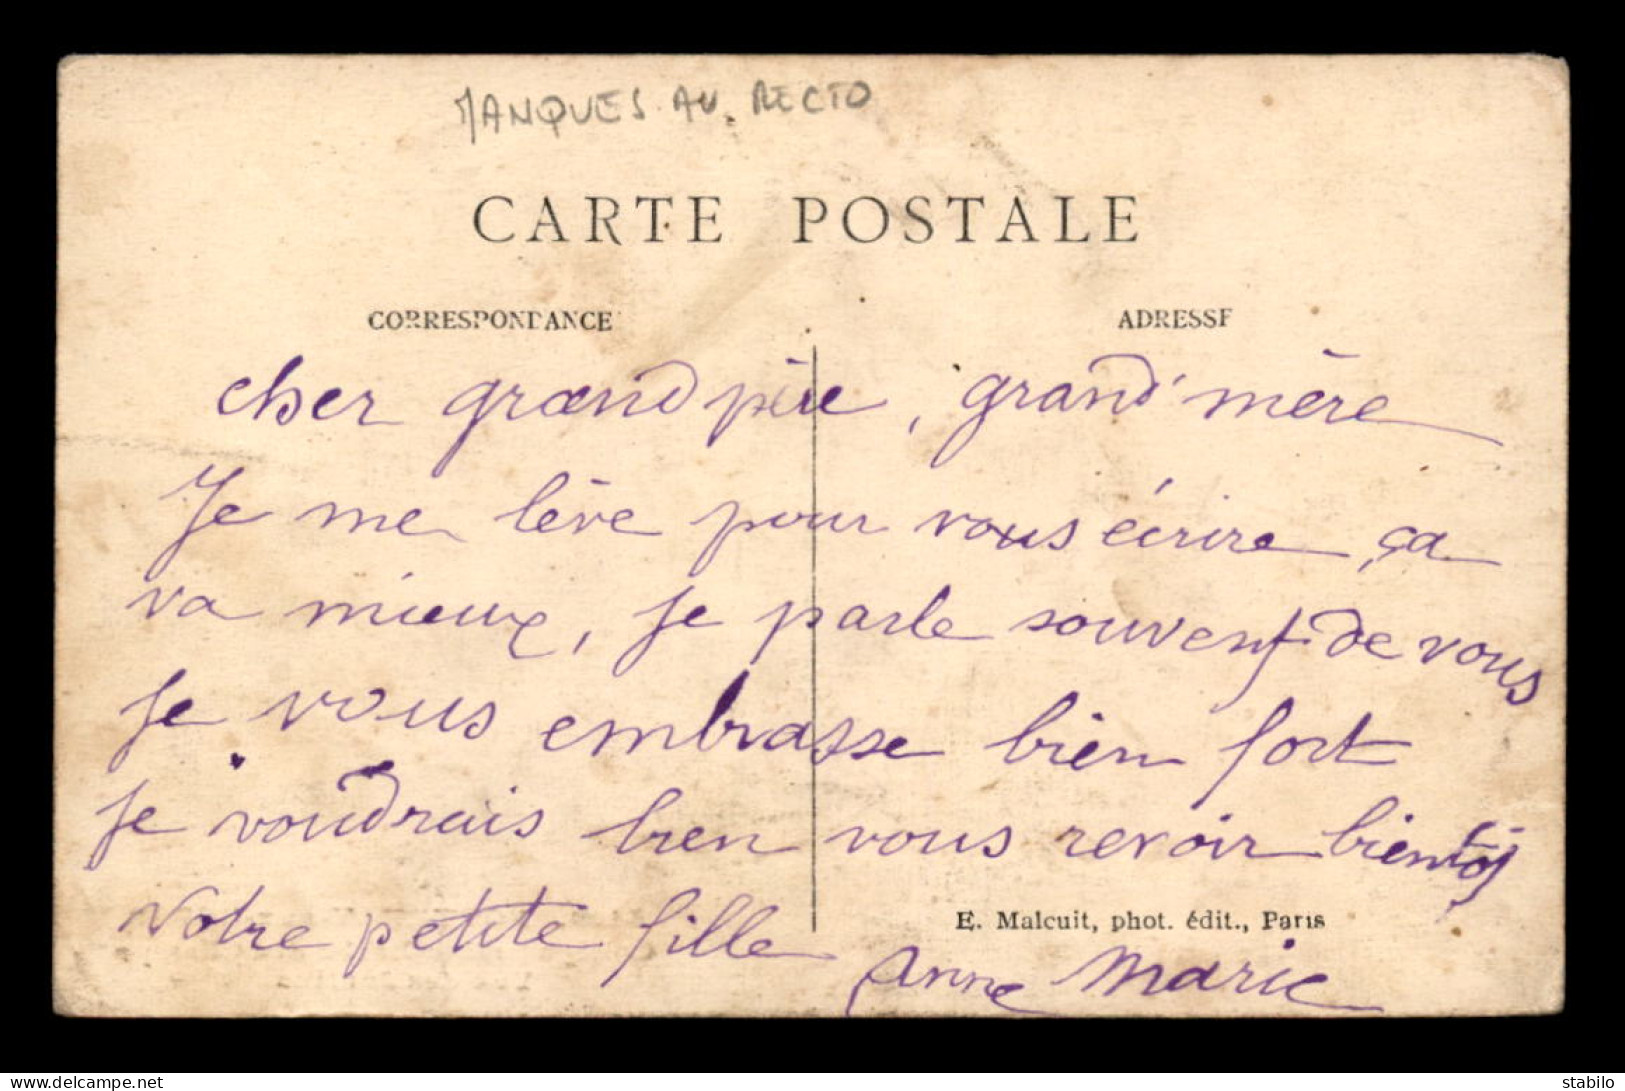 MANQUES AU RECTO
CARTE POSTALE
CORRESPONDANCE
ADRESSE
cher grand père, grand'mère
Je me lève pour vous écrire, ça
va mieux, je parle souvent de vous
Je vous embrasse bien fort
Je voudrais bien vous revoir bientôt
Votre petite fille
E. Malcuit, phot. édit., Paris
Anne Marie
delcampe.net
stabilo